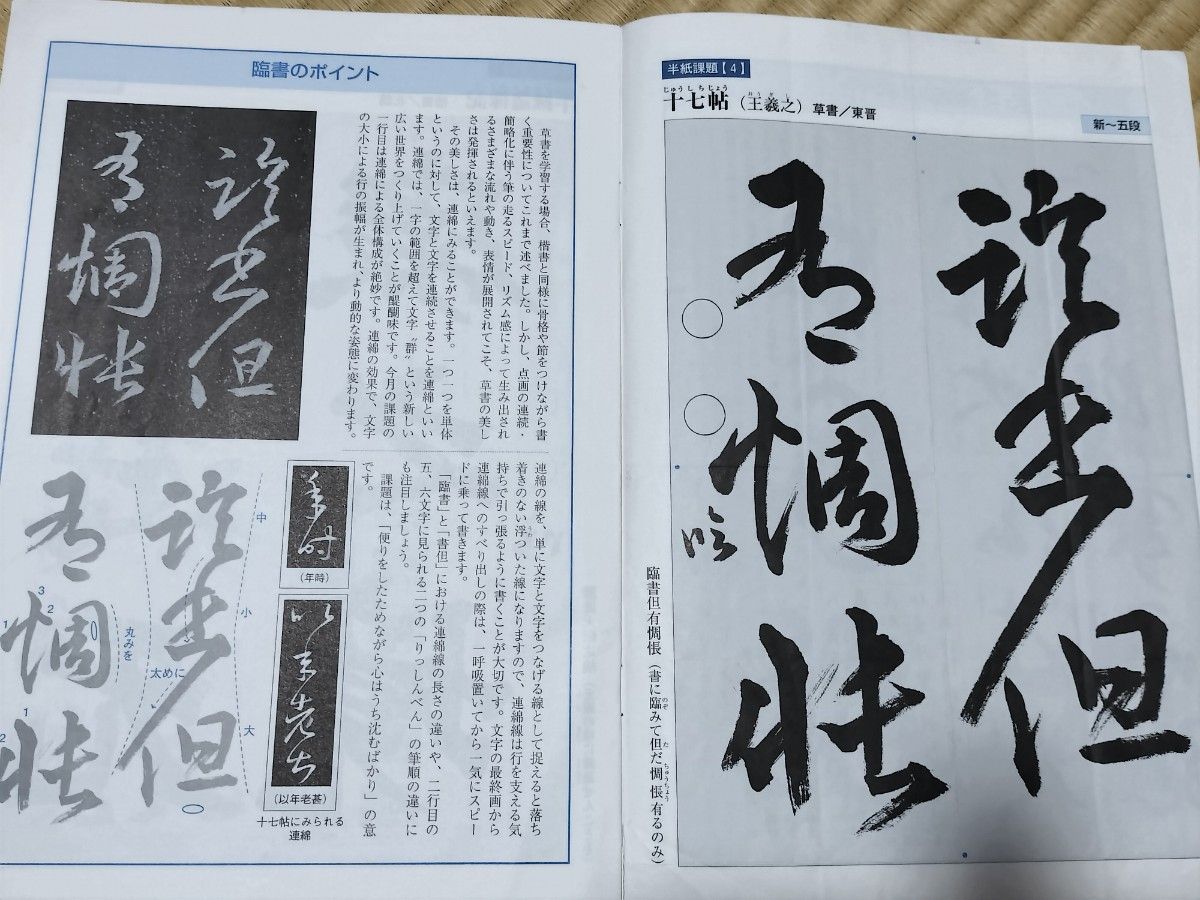 半紙課題【4】
じゅうしちじょう
おうぎし
十七帖（王羲之）草書／東晋
新〜五段
臨書但
有惆悵
臨
臨書但有惆悵（書に臨みて但だ惆悵有るのみ）
のぞ
た
ちゅうちょう
臨書のポイント
臨書但
有惆悵
草書を学習する場合、楷書と同様に骨格や節をつけながら書
く重要性についてこれまで述べました。しかし、点画の連続・
簡略化に伴う筆の走るスピード、リズム感によって生み出され
るさまざまな流れや動き、表情が展開されてこそ、草書の美し
さは発揮されるといえます。
その美しさは、連綿にみることができます。一つ一つを単体
というのに対して、文字と文字を連続させることを連綿といい
ます。連綿では、一字の範囲を超えて文字〝群〟という新しい
広い世界をつくり上げていくことが醍醐味です。今月の課題の
一行目は連綿による全体構成が絶妙です。連綿の効果で、文字
の大小による行の振幅が生まれ、より動的な姿態に変わります。
連綿の線を、単に文字と文字をつなげる線として捉えると落ち
着きのない浮ついた線になりますので、連綿線は行を支える気
うわ
持ちで引っ張るように書くことが大切です。文字の最終画から
連綿線へのすべり出しの際は、一呼吸置いてから一気にスピー
ドに乗って書きます。
「臨書」と「書但」における連綿線の長さの違いや、二行目の
五、六文字に見られる二つの「りっしんべん」の筆順の違いに
も注目しましょう。
課題は、「便りをしたためながら心はうち沈むばかり」の意
です。
年時
（年時）
以年老甚
（以年老甚）
十七帖にみられる
連綿
臨書但
有惆悵
中
小
大
太めに
丸みを
3
2
1
1
2